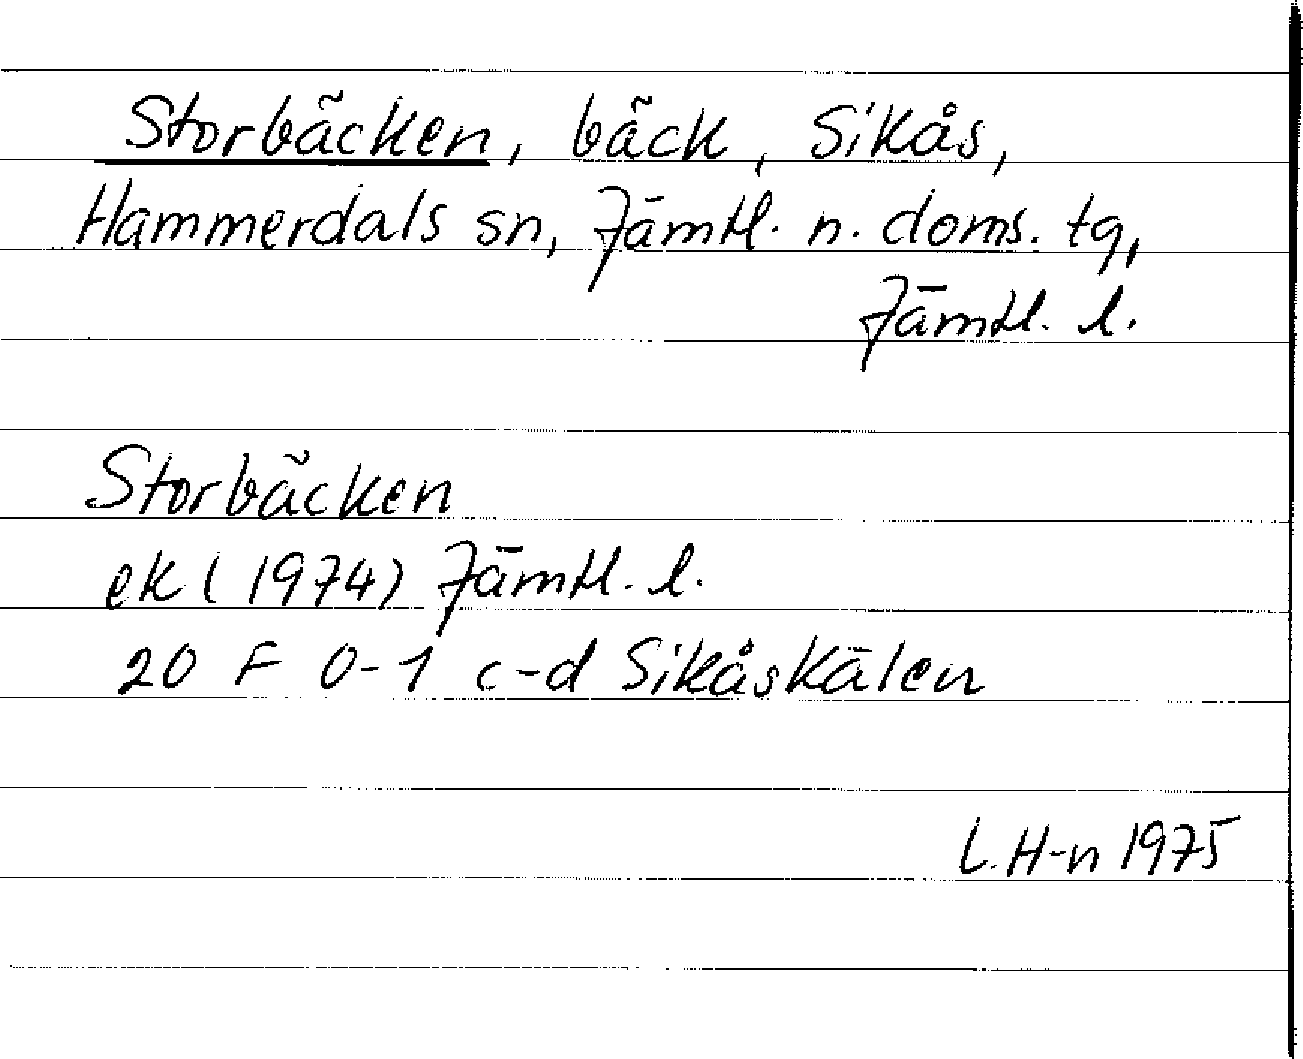 Storbäcken, bäck, Sikås,
Hammerdals sn, Jämtl. n. doms. tg,
Jämtl. l.
Storbäcken
ek (1974) Jämtl. l.
20 F 0-1 c-d Sikåskälen
L. H-n 1975